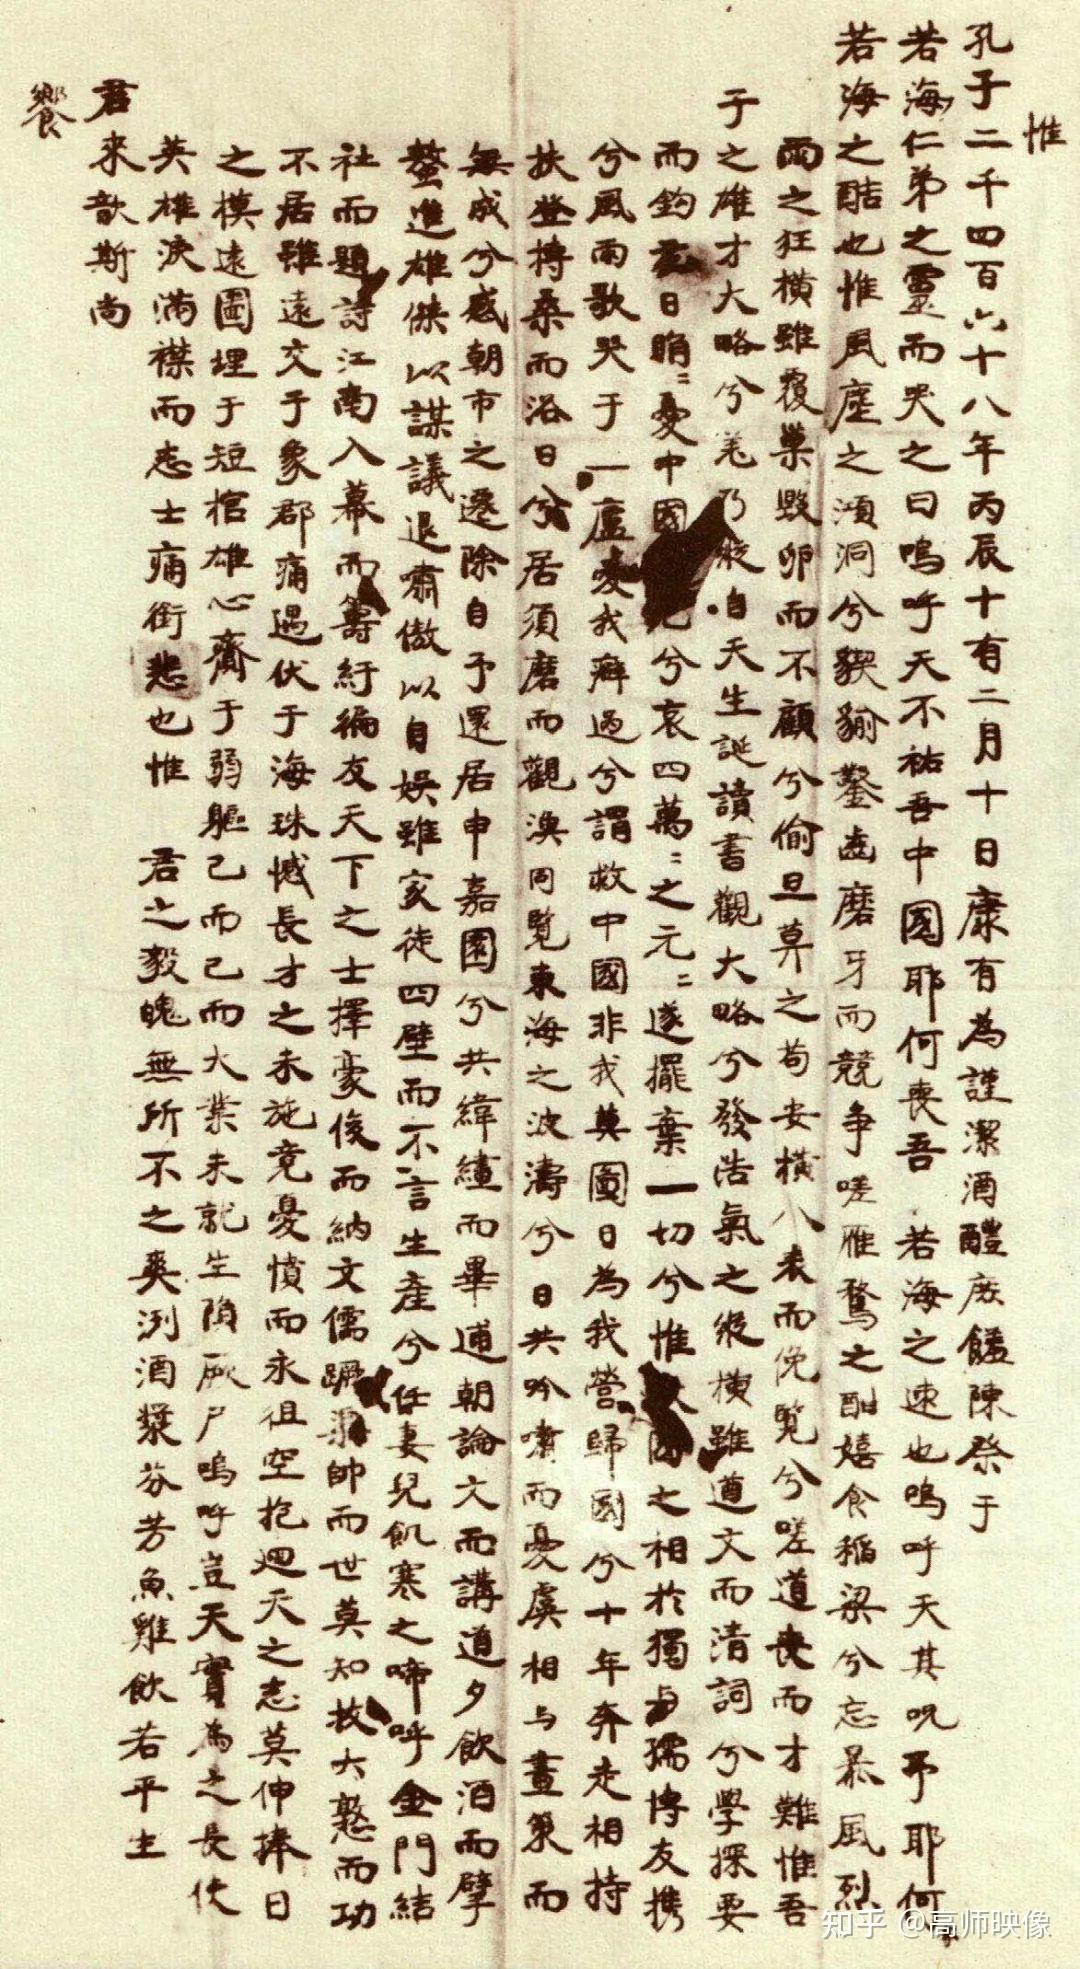 惟
孔子二千四百六十八年丙辰十有二月十日康有為謹潔酒醴庶饈陳祭于
若海仁弟之靈而哭之曰嗚呼天不祐吾中國耶何喪吾 若海之速也嗚呼天其呪予耶何
若海之酷也惟風塵之澒洞兮猰貐鑿齒磨牙而競爭嗟雁鶩之酣嬉食稻粱兮忘暴風烈
雨之狂橫雖覆巢毀卵而不顧兮偷旦莫之苟安橫八表而俛覽兮嗟道喪而才難惟吾
于之雄才大略兮羌乃自天生誕讀書觀大略兮發浩氣之縱橫雖道文而清詞兮學探要
而鈎玄日睊〻憂中國兮哀四萬〻之元〻遂擺棄一切兮惟國之相於獨与孺博友携
兮風雨歌哭于一廬嗳我癖過兮謂救中國非我莫圖日為我營歸國兮十年奔走相持
扶登搏桑而浴日兮居須磨而觀澳同覽東海之波濤兮日共吟嘯而憂虞相与畫策而
無成兮感朝市之遷除自予還居申嘉園兮共緯繣而畢逋朝論文而講道夕飲酒而擘
螯進雄傑以謀議退嘯傲以自娛雖家徒四壁而不言生產兮任妻兒飢寒之啼呼金門結
社而題詩江南入幕而籌紆徧友天下之士擇豪俊而納文儒帥而世莫知救大憝而功
不居雖遠交于象郡痛遇伏于海珠憾長才之未施竟憂憤而永徂空抱迴天之志莫伸捧日
之模遠圖埋于短棺雄心齎于弱軀已而已而大業未就生隕厥尸嗚呼豈天實為之長使
英雄淚滿襟而志士痛銜悲也惟 君之毅魄無所不之爽洌酒漿芬芳魚雞飲若平生
君來歆斯尚
饗
知乎 @高师映像